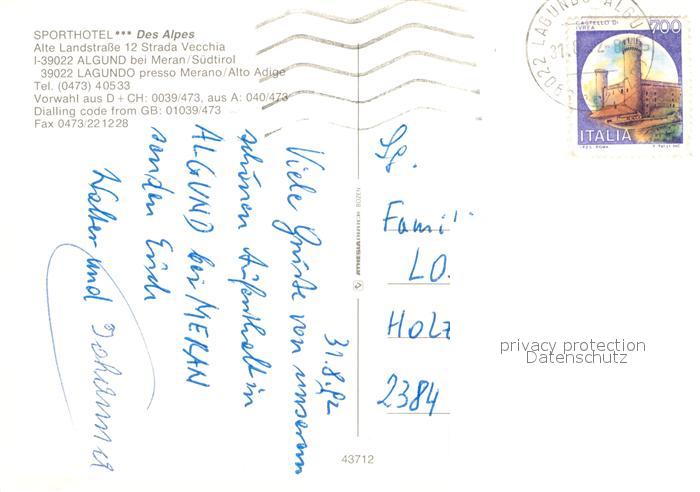 SPORTHOTEL *** Des Alpes
Alte Landstraße 12 Strada Vecchia
I-39022 ALGUND bei Meran/Südtirol
39022 LAGUNDO presso Merano/Alto Adige
Tel. (0473) 40533
Vorwahl aus D + CH: 0039/473, aus A: 040/473
Dialling code from GB: 01039/473
Fax 0473/221228
31.8.92
Viele Grüße von unserem
schönen Aufenthalt in
ALGUND bei MERAN
senden Euch
Walter und Johanna
BOZEN
43712
CASTELLO DI
IVREA
700
ITALIA
I.P.Z.S. ROMA
39022 LAGUNDO
Fami
LO.
HOLZ
2384
privacy protection
Datenschutz